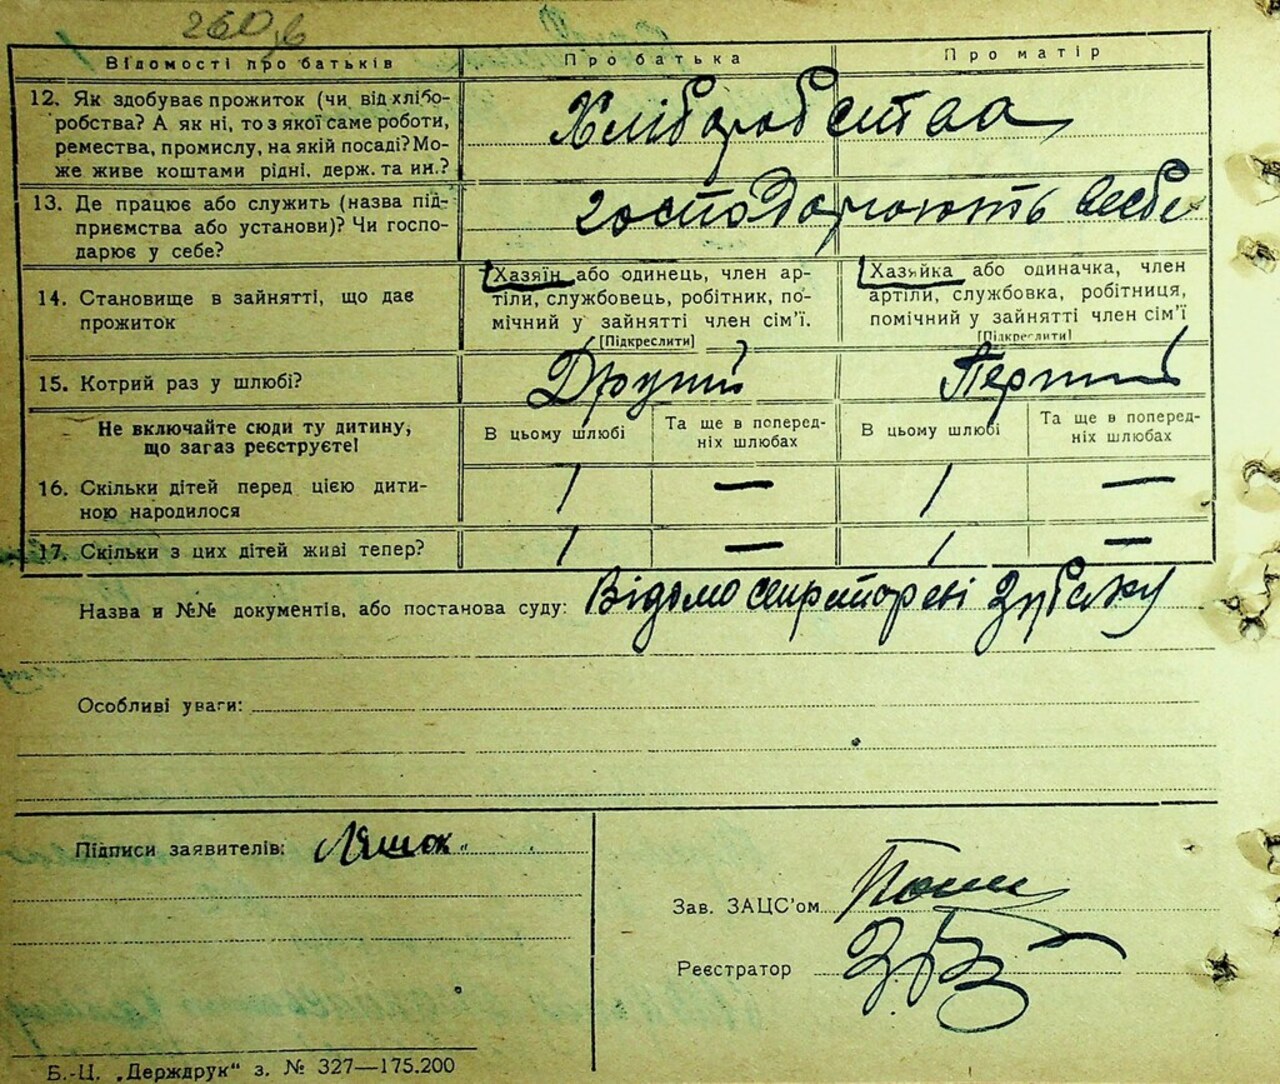 260,в
Відомості про батьків Про батька Про матір
12. Як здобуває прожиток (чи від хлібо-
робства? А як ні, то з якої саме роботи,
ремества, промислу, на якій посаді? Мо-
же живе коштами рідні, держ. та ин.?
Хліборобства
13. Де працює або служить (назва під-
приємства або установи)? Чи госпо-
дарює у себе?
господарюють в себе
14. Становище в зайнятті, що дає
прожиток
Хазяїн або одинець, член ар-
тіли, службовець, робітник, по-
мічний у зайнятті член сім'ї.
[Підкреслити]
Хазяйка або одиначка, член
артіли, службовка, робітниця,
помічний у зайнятті член сім'ї
[Підкреслити]
15. Котрий раз у шлюбі? Другий Перший
Не включайте сюди ту дитину,
що загаз реєструєте!
В цьому шлюбі
Та ще в поперед-
ніх шлюбах
В цьому шлюбі
Та ще в поперед-
ніх шлюбах
16. Скільки дітей перед цією дити-
ною народилося
1 — 1 —
17. Скільки з цих дітей живі тепер? 1 — 1 —
Назва и №№ документів, або постанова суду: Відомо секретареві
Особливі уваги:
Підписи заявителів: Ляшок
Зав. ЗАЦС'ом
Реєстратор
Б.-Ц. „Держдрук“ з. № 327—175.200